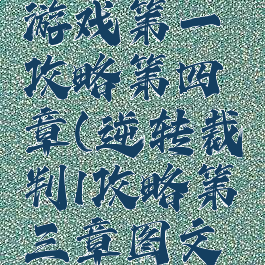 游戏第一
攻略第四
章(逆转裁
判1攻略第
三章图文